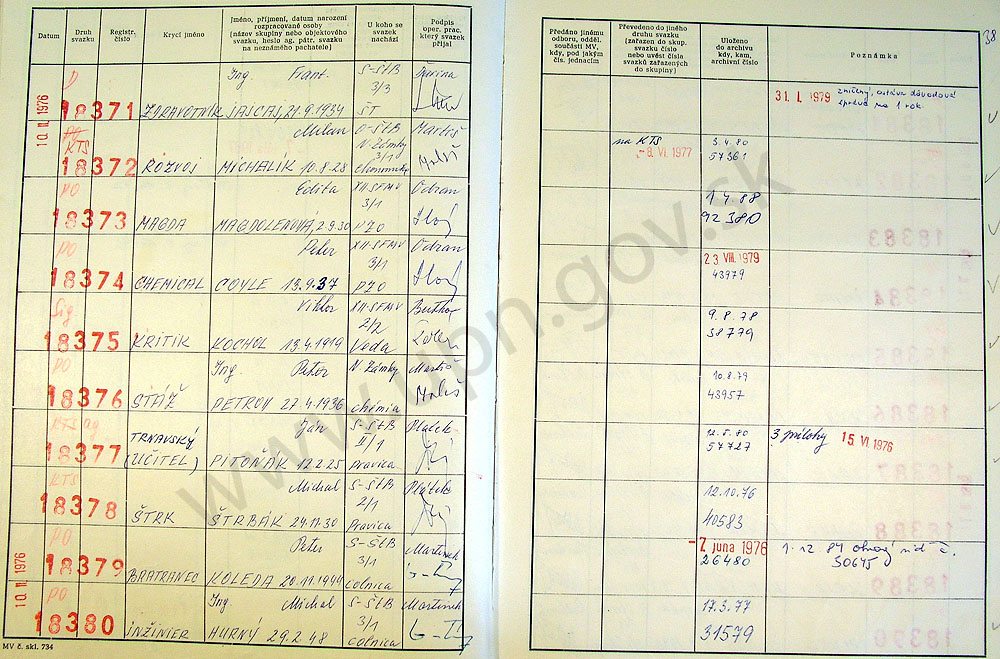 Datum
Druh svazku
Registr. číslo
Krycí jméno
Jméno, příjmení, datum narození rozpracované osoby (název skupiny nebo objektového svazku, heslo ag. pátr. svazku na neznámého pachatele)
U koho se svazek nachází
Podpis oper. prac. který svazek přijal
10 II 1976
D
Ing. Frant. S-ŠtB
3/3
18371 ZDRAVOTNÍK JASCAJ, 21.9.1934 ŠT
PO
KTS
Milan O-ŠtB Martiš
N. Zámky
3/1
18372 ROZVOJ MICHALÍK 10.8.28 ekonomika
PO
Edita XII-SFMV Odran
3/1
18373 MAGDA MAGDOLENOVÁ, 2.9.30 PZO
PO
Peter XII-SFMV Odran
3/1
18374 CHEMICAL COYLE 13.9.37 PZO
Sig
Viktor XII-SFMV
2/2
18375 KRITIK KOCHOL 13.4.1919 Veda
PO
Ing. Peter N. Zámky Martiš
18376 STÁŽ PETROV 27.4.1936 chémia
KTS ag
Ján S-ŠtB
II/1
18377 TRNAVSKÝ
(UČITEL) PITOŇÁK 12.2.25 pravica
KTS
Michal S-ŠtB
2/1
18378 ŠTRK ŠTRBÁK 24.11.30 Pravica
PO
Peter S-ŠtB Martinek
3/1
18379 BRATRANEC KOLEDA 20.11.1944 colnica
10 II 1976
PO
Ing Michal S-ŠtB Martinek
3/1
18380 INŽINIER HURNÝ 29.2.48 colnica
MV č. skl. 734
38
Předáno jinému odboru, odděl. součásti MV, kdy, pod jakým čís. jednacím
Převedeno do jiného druhu svazku (zařazen do skup. svazku číslo nebo uvést čísla svazků zařazených do skupiny)
Uloženo do archivu kdy, kam, archivní číslo
Poznámka
31. I. 1979 zničený, ostáva dôvodová
správa na 1 rok.
na KTS 3.4.80
-8. VI. 1977 57361
1 4. 88
92380
23 VIII. 1979
43979
9.8.78
38779
10.8.79
43957
12.5.80 3 prílohy 15 VI 1976
57727
12.10.76
40583
-7 júna 1976 1.12 84
26480 30645
17.3.77
31579
www.upn.gov.sk